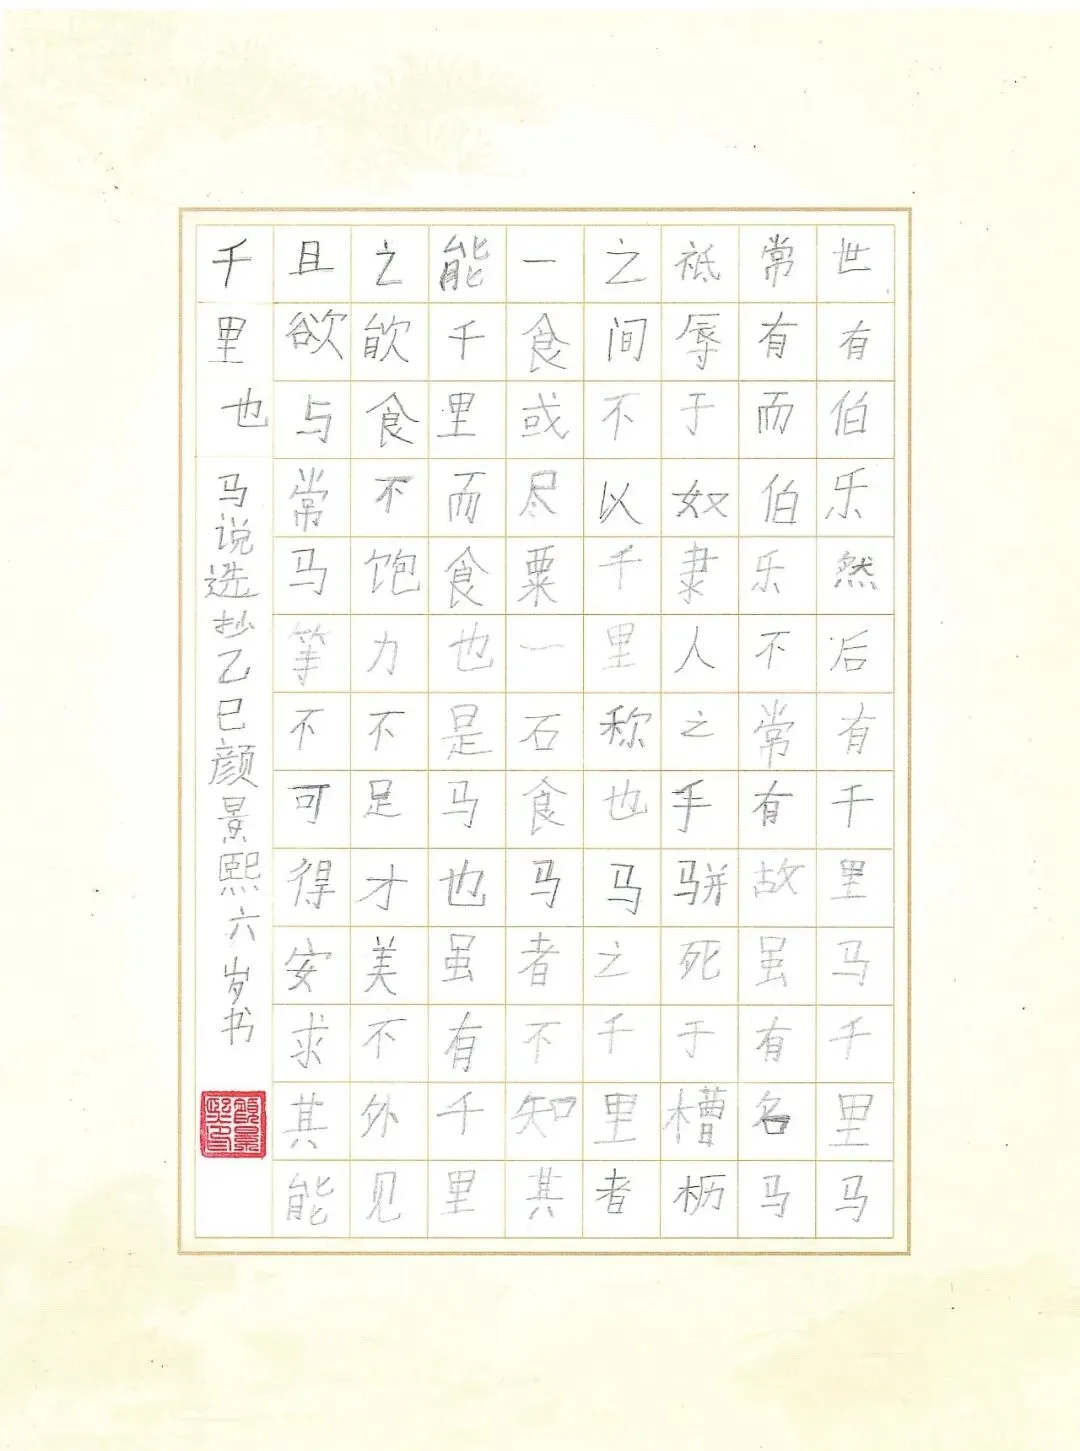 世有伯乐然后有千里马千里马
常有而伯乐不常有故虽有名马
祗辱于奴隶人之手骈死于槽枥
之间不以千里称也马之千里者
一食或尽粟一石食马者不知其
能千里而食也是马也虽有千里
之食不饱力不足才美不外见
且欲与常马等不可得安求其能
千里也 马说选抄乙巳颜景熙六岁书
颜景熙印